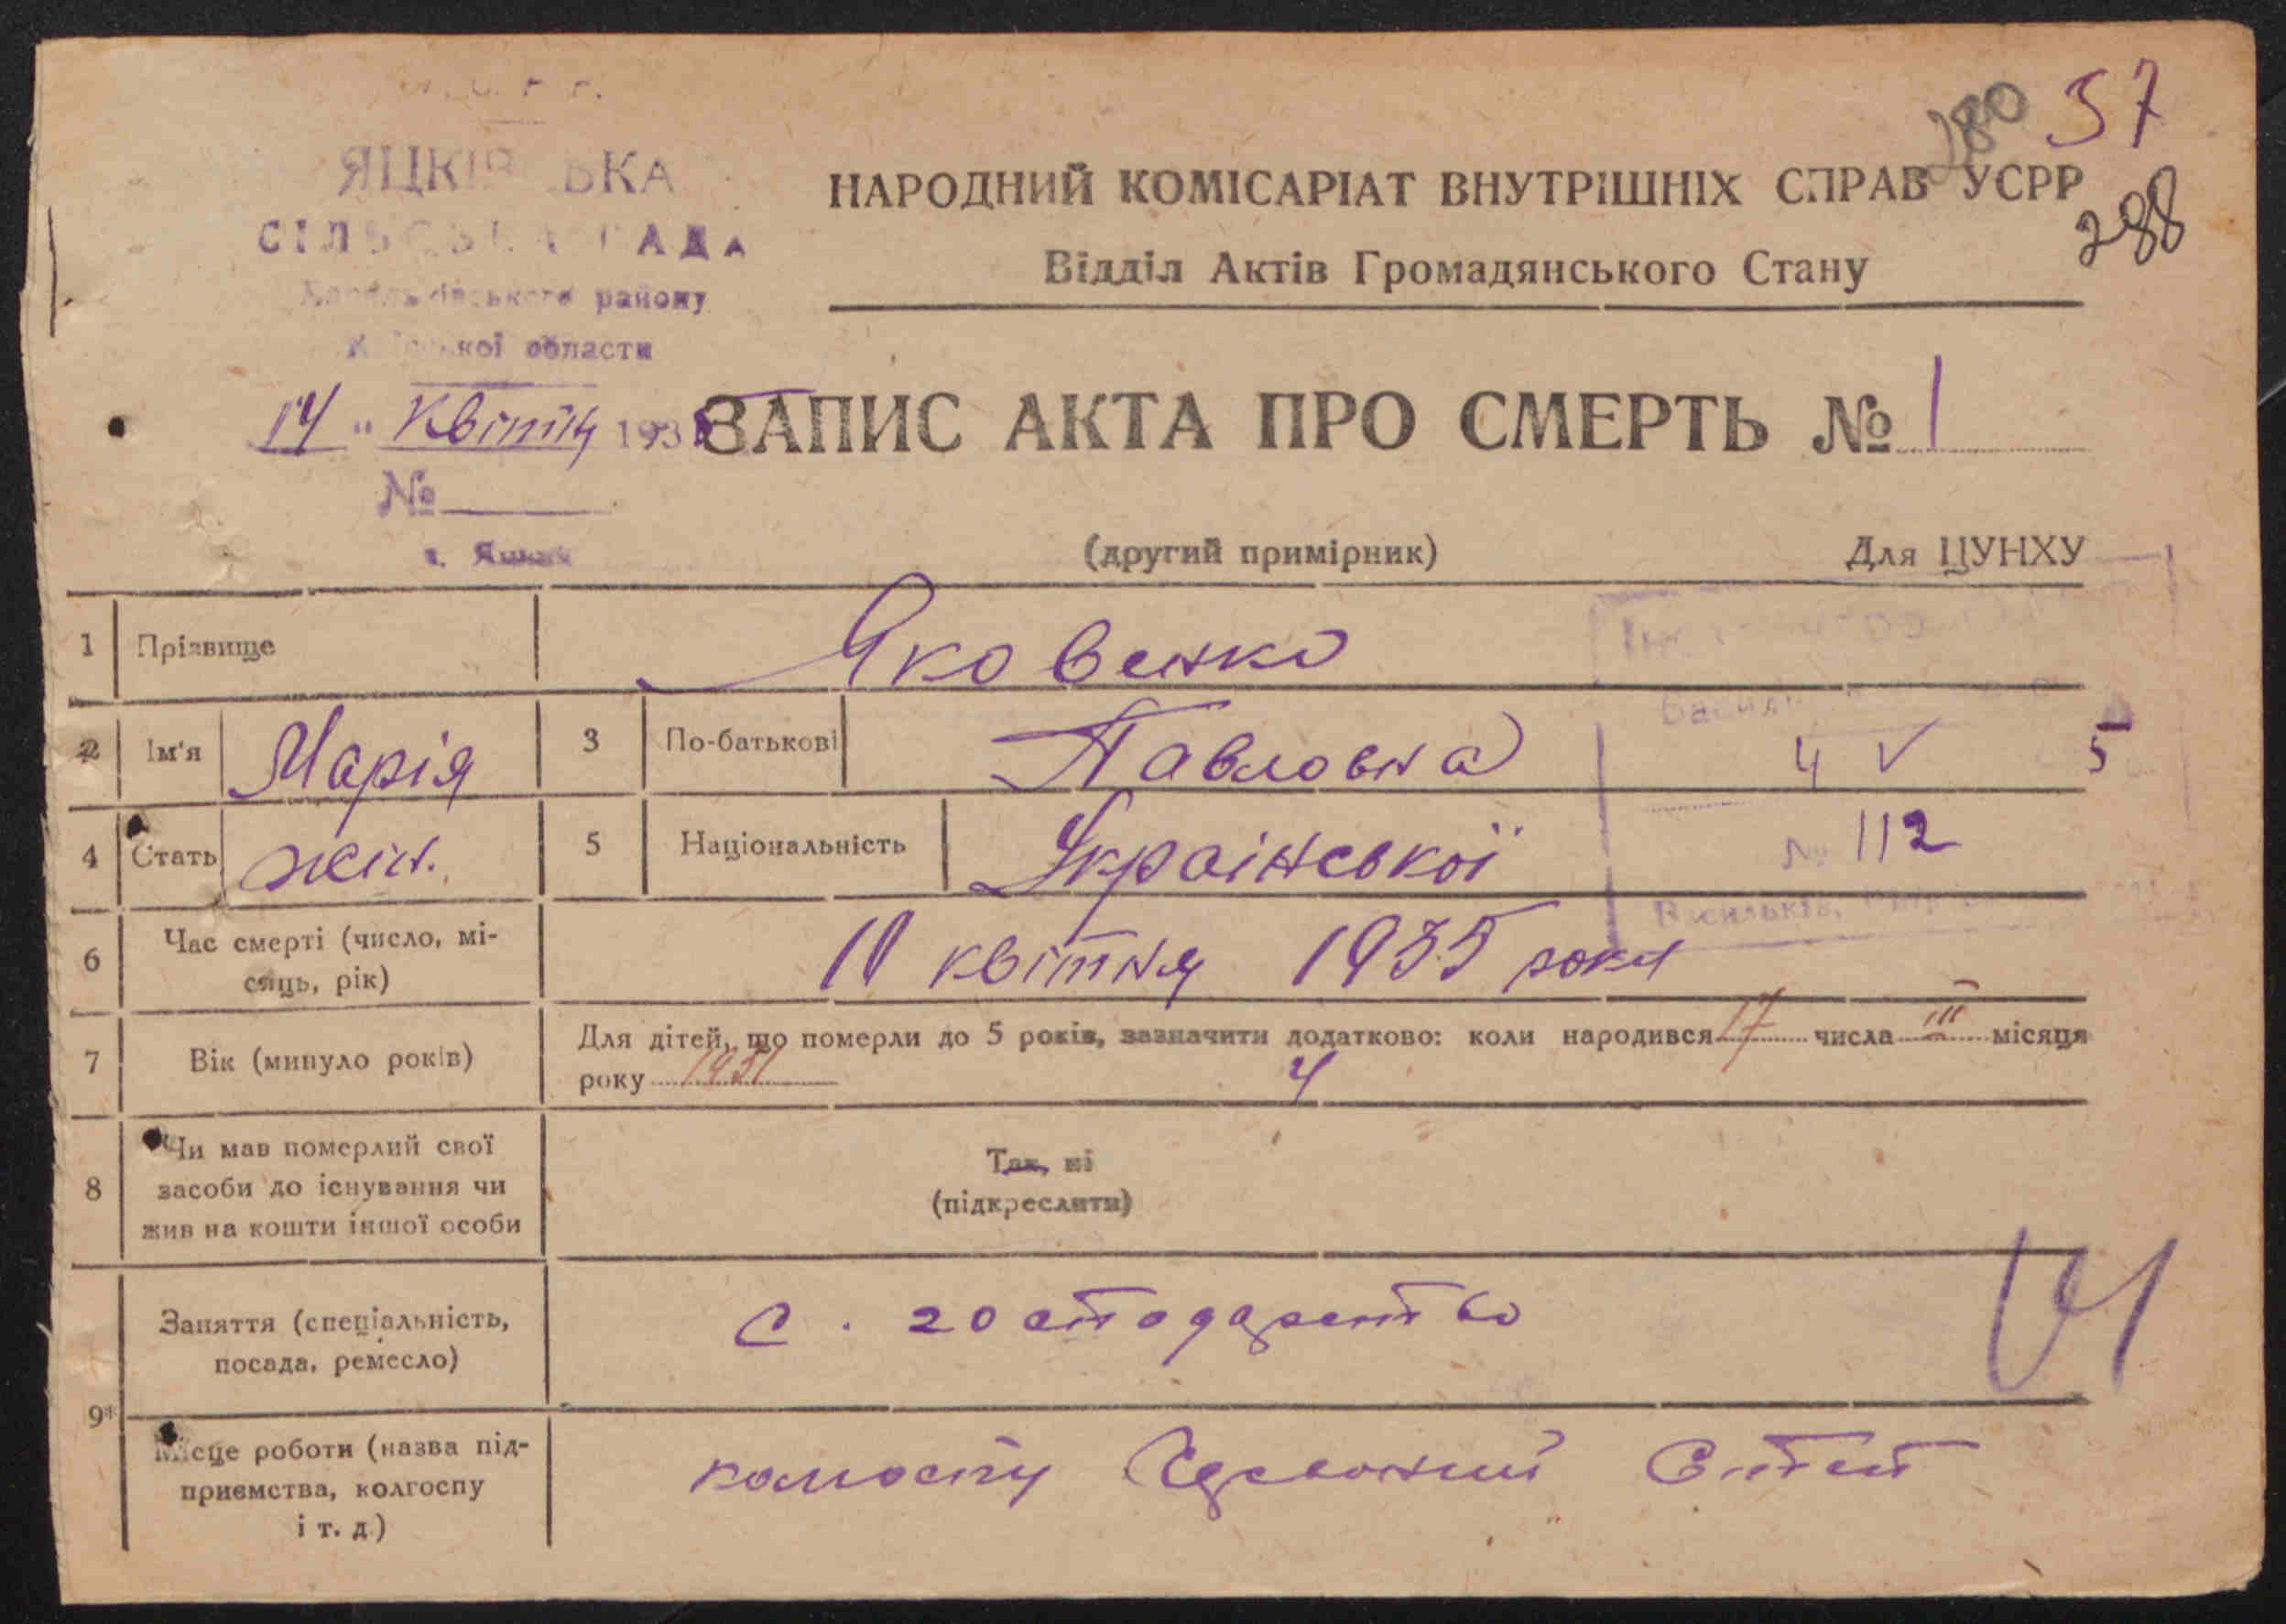 280 37
288
СІЛЬСЬКА РАДА
району
области
НАРОДНИЙ КОМІСАРІАТ ВНУТРІШНІХ СПРАВ УСРР
Відділ Актів Громадянського Стану
14 " Квітня 193
ЗАПИС АКТА ПРО СМЕРТЬ № 1
№
(другий примірник) Для ЦУНХУ
1 Прізвище Яковенко
2 Ім'я Марія 3 По-батькові Павловна
4 V 5
4 Стать жін. 5 Національність Української
№ 112
6 Час смерті (число, мі-
сяць, рік)
квітня 1935 року
7 Вік (минуло років)
Для дітей, що померли до 5 років, зазначити додатково: коли народився 17 числа III місяця
року 1931 4
8 Чи мав померлий свої
засоби до існування чи
жив на кошти іншої особи
Так, ні
(підкреслити)
9* Заняття (спеціальність,
посада, ремесло)
с. господарство
Місце роботи (назва під-
приємства, колгоспу
і т. д.)
колгоспу